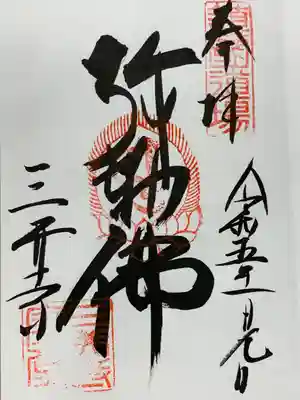 奉拝
令和五年一月元日
弥勒佛
三井寺